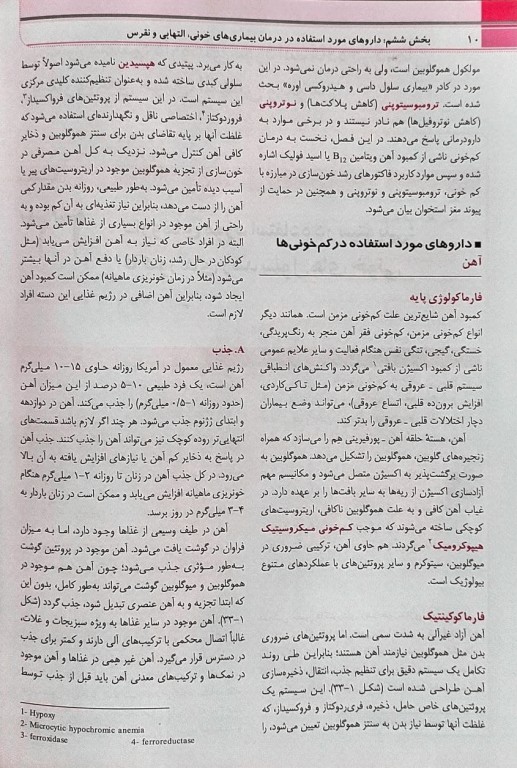 ۱۰ بخش ششم: داروهای مورد استفاده در درمان بیماری‌های خونی، التهابی و نقرس
مولکول هموگلوبین است، ولی به راحتی درمان نمی‌شود. در این
مورد در کادر «بیماری سلول داسی و هیدروکسی اوره» بحث
شده است. ترومبوسیتوپنی (کاهش پلاکت‌ها) و نوتروپنی
(کاهش نوتروفیل‌ها) هم نادر نیستند و در برخی موارد به
دارودرمانی پاسخ می‌دهند. در این فصل، نخست به درمان
کم‌خونی ناشی از کمبود آهن ویتامین B12 یا اسید فولیک اشاره
شده و سپس موارد کاربرد فاکتورهای رشد خون‌سازی در مبارزه با
کم خونی، ترومبوسیتوپنی و نوتروپنی و همچنین در حمایت از
پیوند مغز استخوان بیان می‌شود.
■ داروهای مورد استفاده در کم‌خونی‌ها
آهن
فارماکولوژی پایه
کمبود آهن شایع‌ترین علت کم‌خونی مزمن است. همانند دیگر
انواع کم‌خونی مزمن، کم‌خونی فقر آهن منجر به رنگ‌پریدگی،
خستگی، گیجی، تنگی نفس هنگام فعالیت و سایر علایم عمومی
ناشی از کمبود اکسیژن بافتی۱ می‌گردد. واکنش‌های انطباقی
سیستم قلبی ـ عروقی به کم‌خونی مزمن (مثل تاکی‌کاردی،
افزایش برون‌ده قلبی، اتساع عروقی)، می‌تواند وضع بیماران
دچار اختلالات قلبی ـ عروقی را بدتر کند.
آهن، هستهٔ حلقه آهن ـ پورفیرینی هِم را می‌سازد که همراه
زنجیره‌های گلوبین، هموگلوبین را تشکیل می‌دهد. هموگلوبین به
صورت برگشت‌پذیر به اکسیژن متصل می‌شود و مکانیسم مهم
آزادسازی اکسیژن از ریه‌ها به سایر بافت‌ها را بر عهده دارد. در
غیاب آهن کافی و به علت هموگلوبین ناکافی، اریتروسیت‌های
کوچکی ساخته می‌شوند که موجب کم‌خونی میکروسیتیک
هیپوکرومیک۲ می‌گردند. هم حاوی آهن، ترکیبی ضروری در
میوگلوبین، سیتوکرم و سایر پروتئین‌های با عملکردهای متنوع
بیولوژیک است.
فارماکوکینتیک
آهن آزاد غیرآلی به شدت سمی است. اما پروتئین‌های ضروری
بدن مثل هموگلوبین نیازمند آهن هستند؛ بنابراین طی روند
تکامل یک سیستم دقیق برای تنظیم جذب، انتقال، ذخیره‌سازی
آهن طراحی شده است (شکل ۱-۳۳). این سیستم یک
پروتئین‌های خاص حامل، ذخیره، فری‌ردوکتاز و فروکسیداز، که
غلظت آنها توسط نیاز بدن به سنتز هموگلوبین تعیین می‌شود، را
به کار می‌برد. پپتیدی که هپسیدین نامیده می‌شود اصولاً توسط
سلولی کبدی ساخته شده و به‌عنوان تنظیم‌کننده کلیدی مرکزی
این سیستم است. در این سیستم از پروتئین‌های فروکسیداز۳،
فروردوکتاز۴، اختصاصی ناقل و نگهدارنده‌ای استفاده می‌شود که
غلظت آنها بر پایه تقاضای بدن برای سنتز هموگلوبین و ذخایر
کافی آهن کنترل می‌شود. نزدیک به کل آهن مصرفی در
خون‌سازی از تجزیه هموگلوبین موجود در اریتروسیت‌های پیر یا
آسیب دیده تأمین می‌شود. به‌طور طبیعی، روزانه بدن مقدار کمی
آهن را از دست می‌دهد، بنابراین نیاز تغذیه‌ای به آن کم بوده و به
راحتی از آهن موجود در انواع بسیاری از غذاها تأمین می‌شود.
البته در افراد خاصی که نیاز به آهن افزایش می‌یابد (مثل
کودکان در حال رشد، زنان باردار) یا دفع آهن در آنها بیشتر
می‌شود (مثلاً در زمان خونریزی ماهیانه) ممکن است کمبود آهن
ایجاد شود، بنابراین آهن اضافی در رژیم غذایی این دسته افراد
لازم است.
A. جذب
رژیم غذایی معمول در آمریکا روزانه حاوی ۱۵-۱۰ میلی‌گرم
آهن است، یک فرد طبیعی ۱۰-۵ درصد از این میزان آهن
(حدود روزانه ۱-۰/۵ میلی‌گرم) را جذب می‌کند. آهن در دوازدهه
و ابتدای ژژنوم جذب می‌شود. هر چند اگر لازم باشد قسمت‌های
انتهایی‌تر روده کوچک نیز می‌تواند آهن را جذب کنند. جذب آهن
در پاسخ به ذخایر کم آهن یا نیازهای افزایش یافته به آن بالا
می‌رود. در کل جذب آهن در زنان تا روزانه ۲-۱ میلی‌گرم هنگام
خونریزی ماهیانه افزایش می‌یابد و ممکن است در زنان باردار به
۴-۳ میلی‌گرم در روز برسد.
آهن در طیف وسیعی از غذاها وجود دارد، اما به میزان
فراوان در گوشت یافت می‌شود. آهن موجود در پروتئین گوشت
به‌طور مؤثری جذب می‌شود؛ چون آهن هم موجود در
هموگلوبین و میوگلوبین گوشت می‌تواند به‌طور کامل، بدون این
که ابتدا تجزیه و به آهن عنصری تبدیل شود، جذب گردد (شکل
۱-۳۳). آهن موجود در سایر غذاها به ویژه سبزیجات و غلات،
غالباً اتصال محکمی با ترکیب‌های آلی دارند و کمتر برای جذب
در دسترس قرار می‌گیرد. آهن غیر هِمی در غذاها و آهن موجود
در نمک‌ها و ترکیب‌های معدنی آهن باید قبل از جذب توسط
1- Hypoxy
2- Microcytic hypochromic anemia
3- ferroxidase 4- ferroreductase